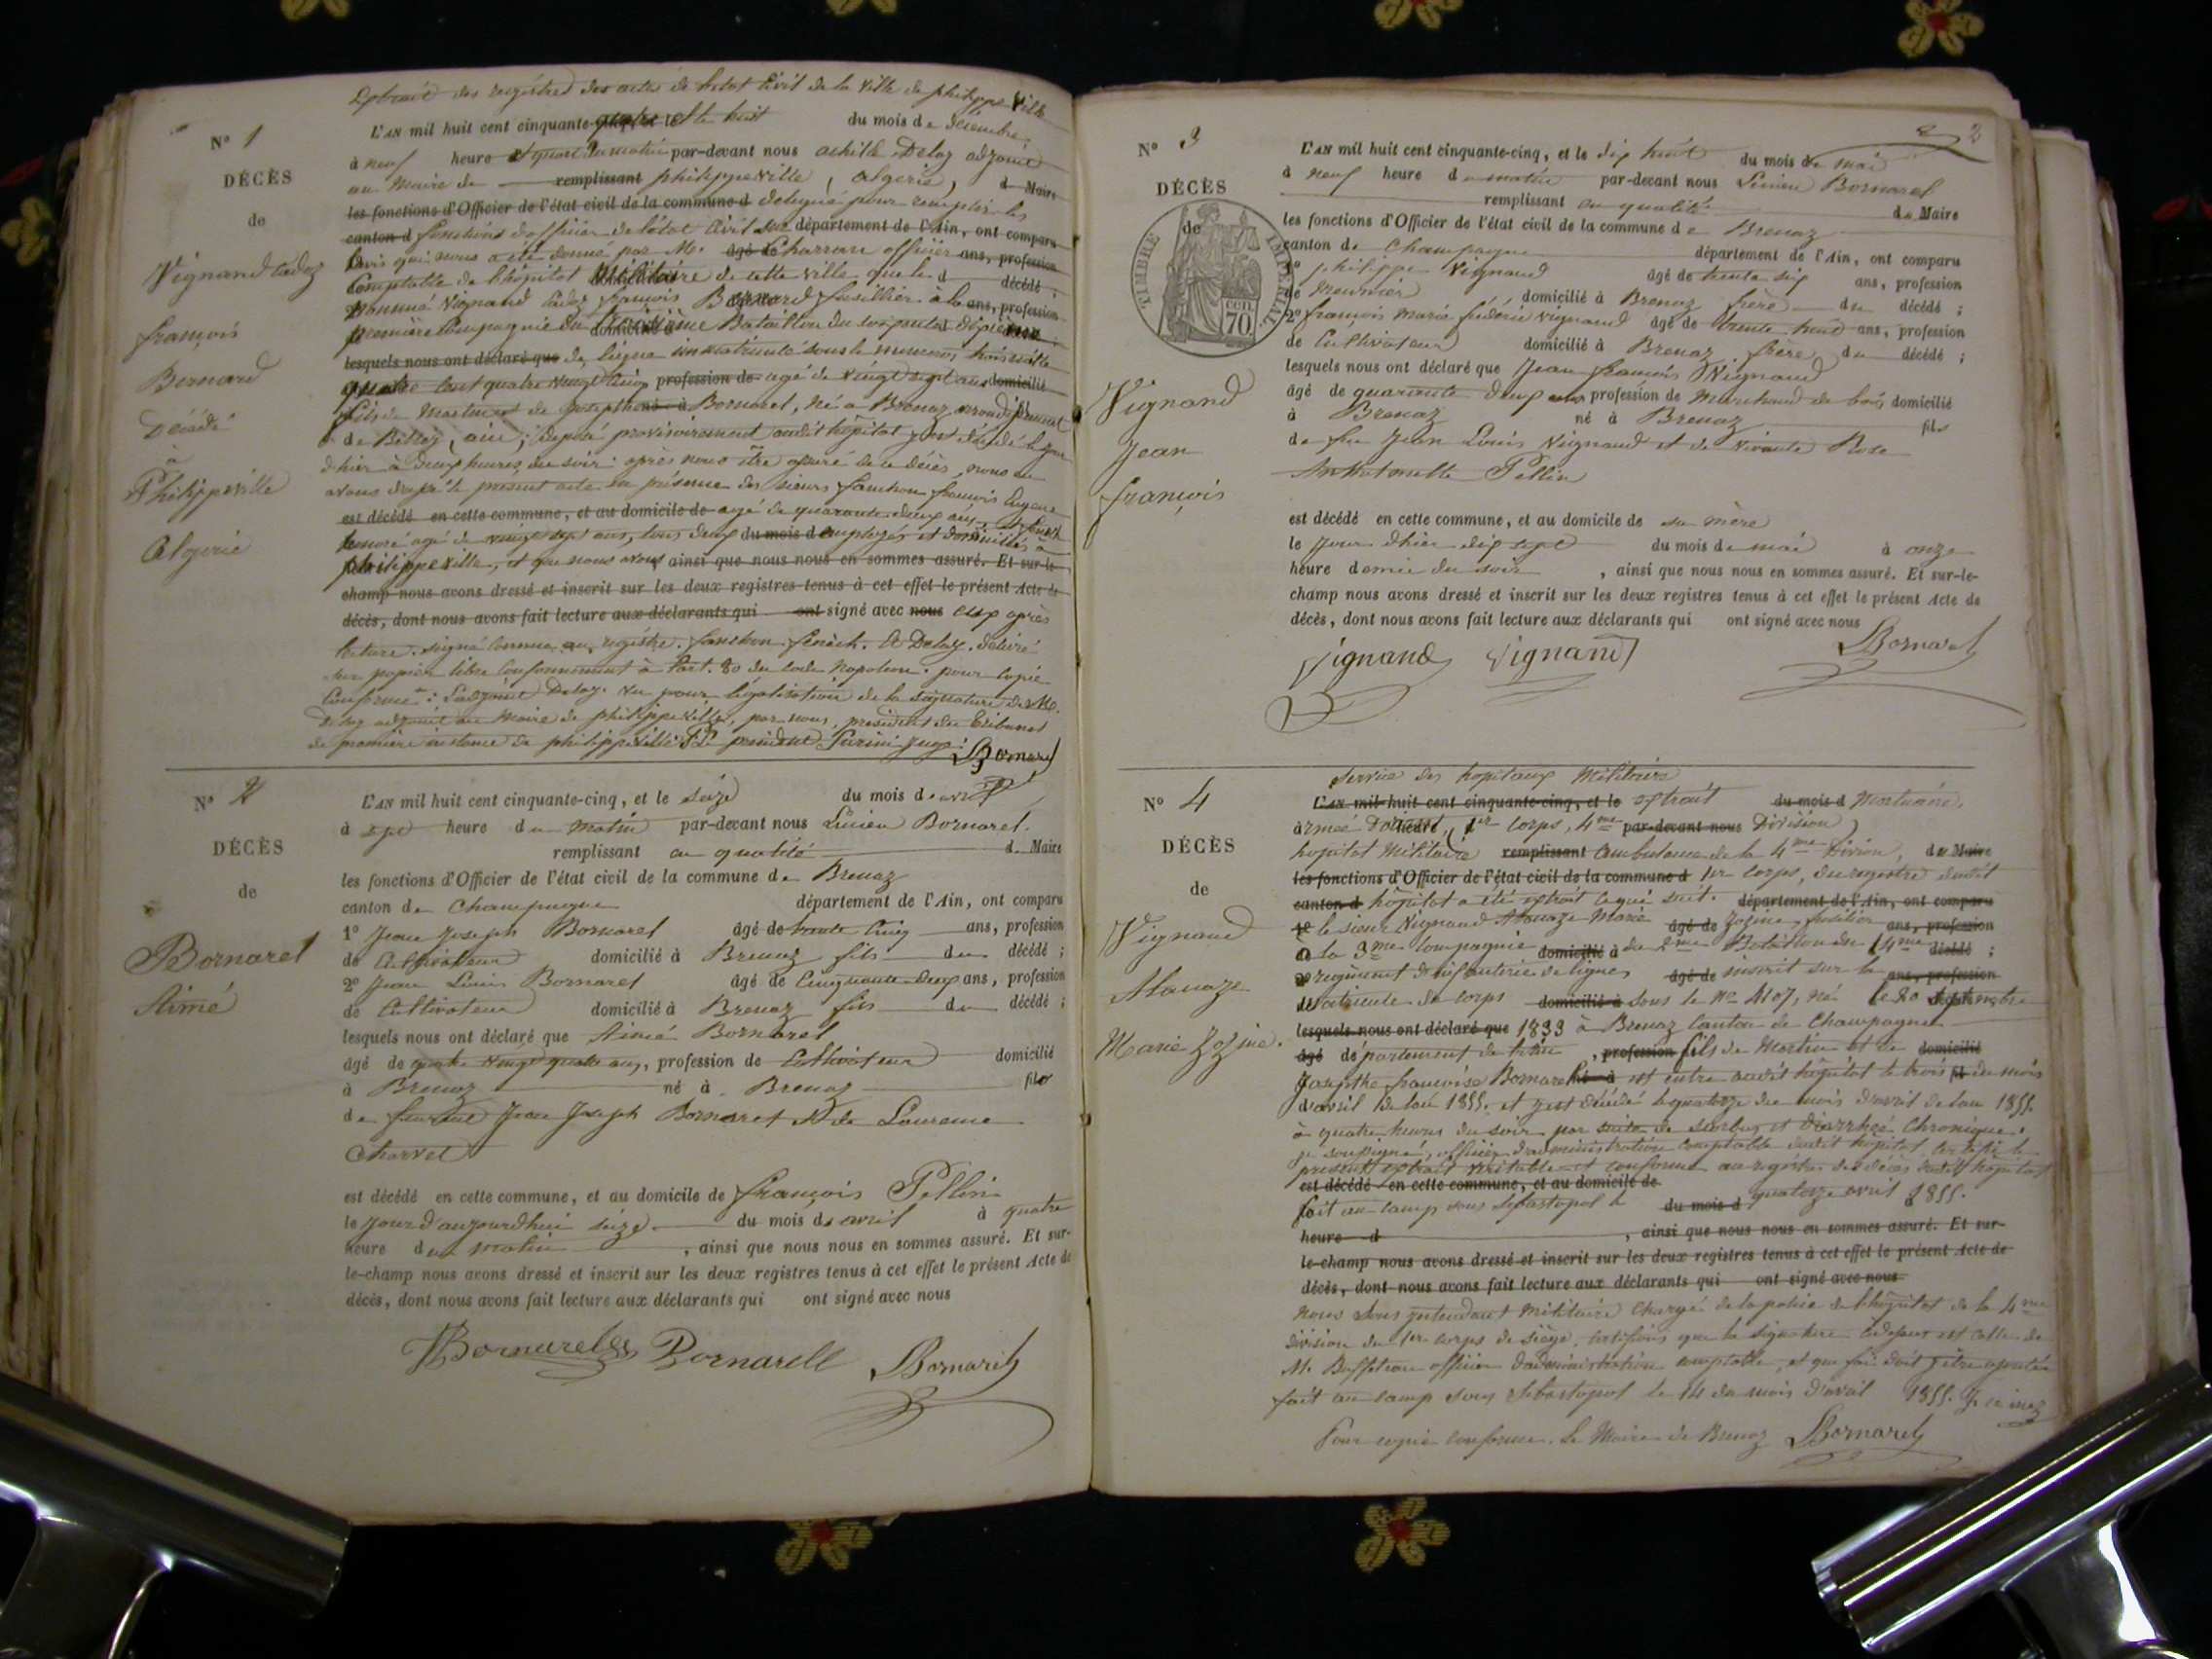 Extrait des registres des actes de l'etat Civil de la Ville de philippe Ville
N° 1
L'AN mil huit cent cinquante quatre et le huit du mois de décembre
à neuf heure du matin par-devant nous achille Delaz adjoint
DÉCÈS
au Maire de remplissant philippeville, (algérie) d Maire
de
les fonctions d'Officier de l'état civil de la commune d délégué pour remplir les
canton d fonctions d'officier de l'état Civil sur département de l'Ain, ont comparu
l'avis qui nous a été donné par M. âgé de officier ans, profession
Comptable de l'hôpital Militaire de cette ville que le d décédé ;
Vignand cadez
Nommé Vignand Cadez françois Bernard fusillier à la ans, profession
première Compagnie du Bataillon du soixante
françois
lesquels nous ont déclaré que de ligne immatriculé sous le numéro trois mille
Bernard
quatre cent quatre vingt cinq profession de agé de vingt sept ans domicilié
Décédé
fils de Martin et de Josephte Bornarel, né à Brenaz arrondissement
à
de Belley, ain; déposé provisoirement audit hôpital y est décédé le jour
Philippeville
d'hier à deux heures du soir: après nous être assuré de ce décès, nous en
Algerie
avons dressé le présent acte en présence des sieurs fanchon françois Eugene
est décédé en cette commune, et au domicile de agé de quarante deux ans, et
honoré agé de vingt sept ans, tous deux du mois d employés et domiciliés à
philippeville, et que nous avons ainsi que nous nous en sommes assuré. Et sur-le-
champ nous avons dressé et inscrit sur les deux registres tenus à cet effet le présent Acte de
décès, dont nous avons fait lecture aux déclarants qui ont signé avec nous eux après
lecture. signé comme au registre. fanchon. et Delaz. délivré
sur papier libre Conformément à l'art. 80 du Code Napoléon. pour copie
Conforme: l'adjoint Delaz. Vu pour légalisation de la signature de M.
Delaz adjoint au Maire de philippeville, par nous, president du Tribunal
de première instance de philippeville Le president juge: Bornarel
N° 2
L'AN mil huit cent cinquante-cinq, et le seize du mois d avril
à sept heure du matin par-devant nous Lucien Bornarel.
DÉCÈS
remplissant en qualité d. Maire
les fonctions d'Officier de l'état civil de la commune de Brenaz
de
canton de Champagne département de l'Ain, ont comparu
1° Jean Joseph Bornarel âgé de trente Cinq ans, profession
Bornarel
de Cultivateur domicilié à Brenaz fils du décédé ;
2° Jean Louis Bornarel âgé de Cinquante deux ans, profession
Aimé
de Cultivateur domicilié à Brenaz fils du décédé ;
lesquels nous ont déclaré que Aimé Bornarel
âgé de quatre vingt quatre ans, profession de Cultivateur domicilié
à Brenaz né à Brenaz fils
de Jean Joseph Bornarel et de Laurence
Charvet
est décédé en cette commune, et au domicile de françois Pellin
le jour d'aujourdhui seize du mois de avril à quatre
heure du matin, ainsi que nous nous en sommes assuré. Et sur-
le-champ nous avons dressé et inscrit sur les deux registres tenus à cet effet le présent Acte de
décès, dont nous avons fait lecture aux déclarants qui ont signé avec nous
Bornarel Bornarell Bornarel
2
N° 3
L'AN mil huit cent cinquante-cinq, et le dix huit du mois de mai
à neuf heure du matin par-devant nous Lucien Bornarel
DÉCÈS
remplissant en qualité de Maire
de
les fonctions d'Officier de l'état civil de la commune de Brenaz
TIMBRE IMPÉRIAL
cen 70
canton de Champagne département de l'Ain, ont comparu
1° philippe Vignand âgé de trente six ans, profession
de Meunier domicilié à Brenaz frère du décédé ;
2° françois Marie frédéric Vignand âgé de trente huit ans, profession
de Cultivateur domicilié à Brenaz frère du décédé ;
lesquels nous ont déclaré que Jean françois Vignand
Vignand
âgé de quarante deux ans profession de Marchand de bois domicilié
à Brenaz né à Brenaz fils
Jean
de feu Jean Louis Vignand et de vivante Rose
Anthonette Pellin
françois
est décédé en cette commune, et au domicile de sa mère
le jour d'hier dix sept du mois de mai à onze
heure demie du soir, ainsi que nous nous en sommes assuré. Et sur-le-
champ nous avons dressé et inscrit sur les deux registres tenus à cet effet le présent Acte de
décès, dont nous avons fait lecture aux déclarants qui ont signé avec nous
Vignand Vignand Bornarel
Service des hopitaux Militaire
N° 4
L'AN mil huit cent cinquante-cinq, et le extrait du mois d Mortuaire.
armée d'orient, heure 1er Corps, 4me par-devant nous Division
DÉCÈS
hopital Militaire remplissant ambulance de la 4me Division, de Maire
les fonctions d'Officier de l'état civil de la commune d 1er Corps, du registre dudit
de
canton d hôpital a été extrait ce qui suit. département de l'Ain, ont comparu
Vignand
1° le sieur Vignand Marie âgé de Zozime fusilier ans, profession
à la 3me Compagnie domicilié à du 2me Bataillon du 14me décédé ;
2° regiment d'infanterie de ligne âgé de inscrit sur la ans, profession
Matricule du Corps domicilié à sous le N° 4107, né le 20 septembre
lesquels nous ont déclaré que 1833 à Brenaz Canton de Champagne
Marie Zozime.
âgé département de l'ain, profession fils de Martin et de domicilié
Josephte françoise Bornarel né à est entré audit hôpital le trois fil du mois
d'avril de l'an 1855. et y est décédé le quatorze du mois d'avril de l'an 1855.
à quatre heures du soir par suite de scorbut et diarrhée Chronique.
je soussigné, officier d'administration comptable dudit hôpital certifie le
présent extrait véritable et conforme au registre des décès dudit hopital
est décédé en cette commune, et au domicile de
fait au camp sous Sébastopol le du mois d quatorze avril 1855.
heure d, ainsi que nous nous en sommes assuré. Et sur-
le-champ nous avons dressé et inscrit sur les deux registres tenus à cet effet le présent Acte de
décès, dont nous avons fait lecture aux déclarants qui ont signé avec nous
Nous Sous intendant Militaire Chargé de la police de l'hopital de la 4me
division du 1er corps de siège, certifions que la signature cidessus est celle de
M. officier d'administration comptable, et que foi doit y être ajoutée
fait au camp sous Sebastopol le 14 du mois d'avril 1855.
Pour copie conforme. Le Maire de Brenaz Bornarel